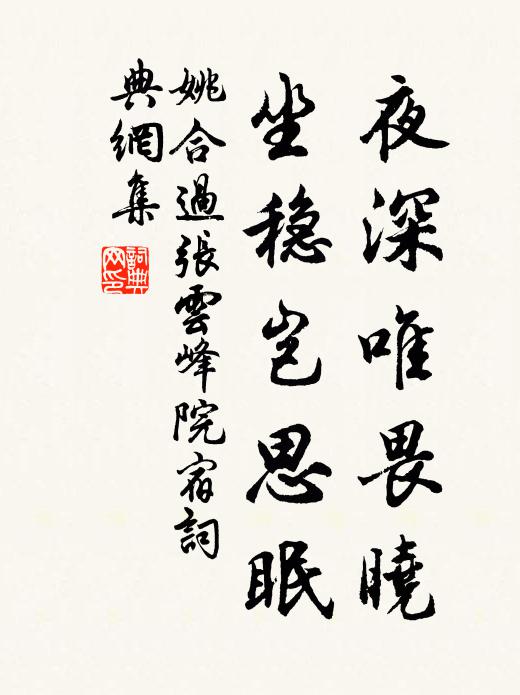 夜深唯畏曉
坐穏岂思眠
姚合過張雲峰院宿詞
典網集
詞典
网印